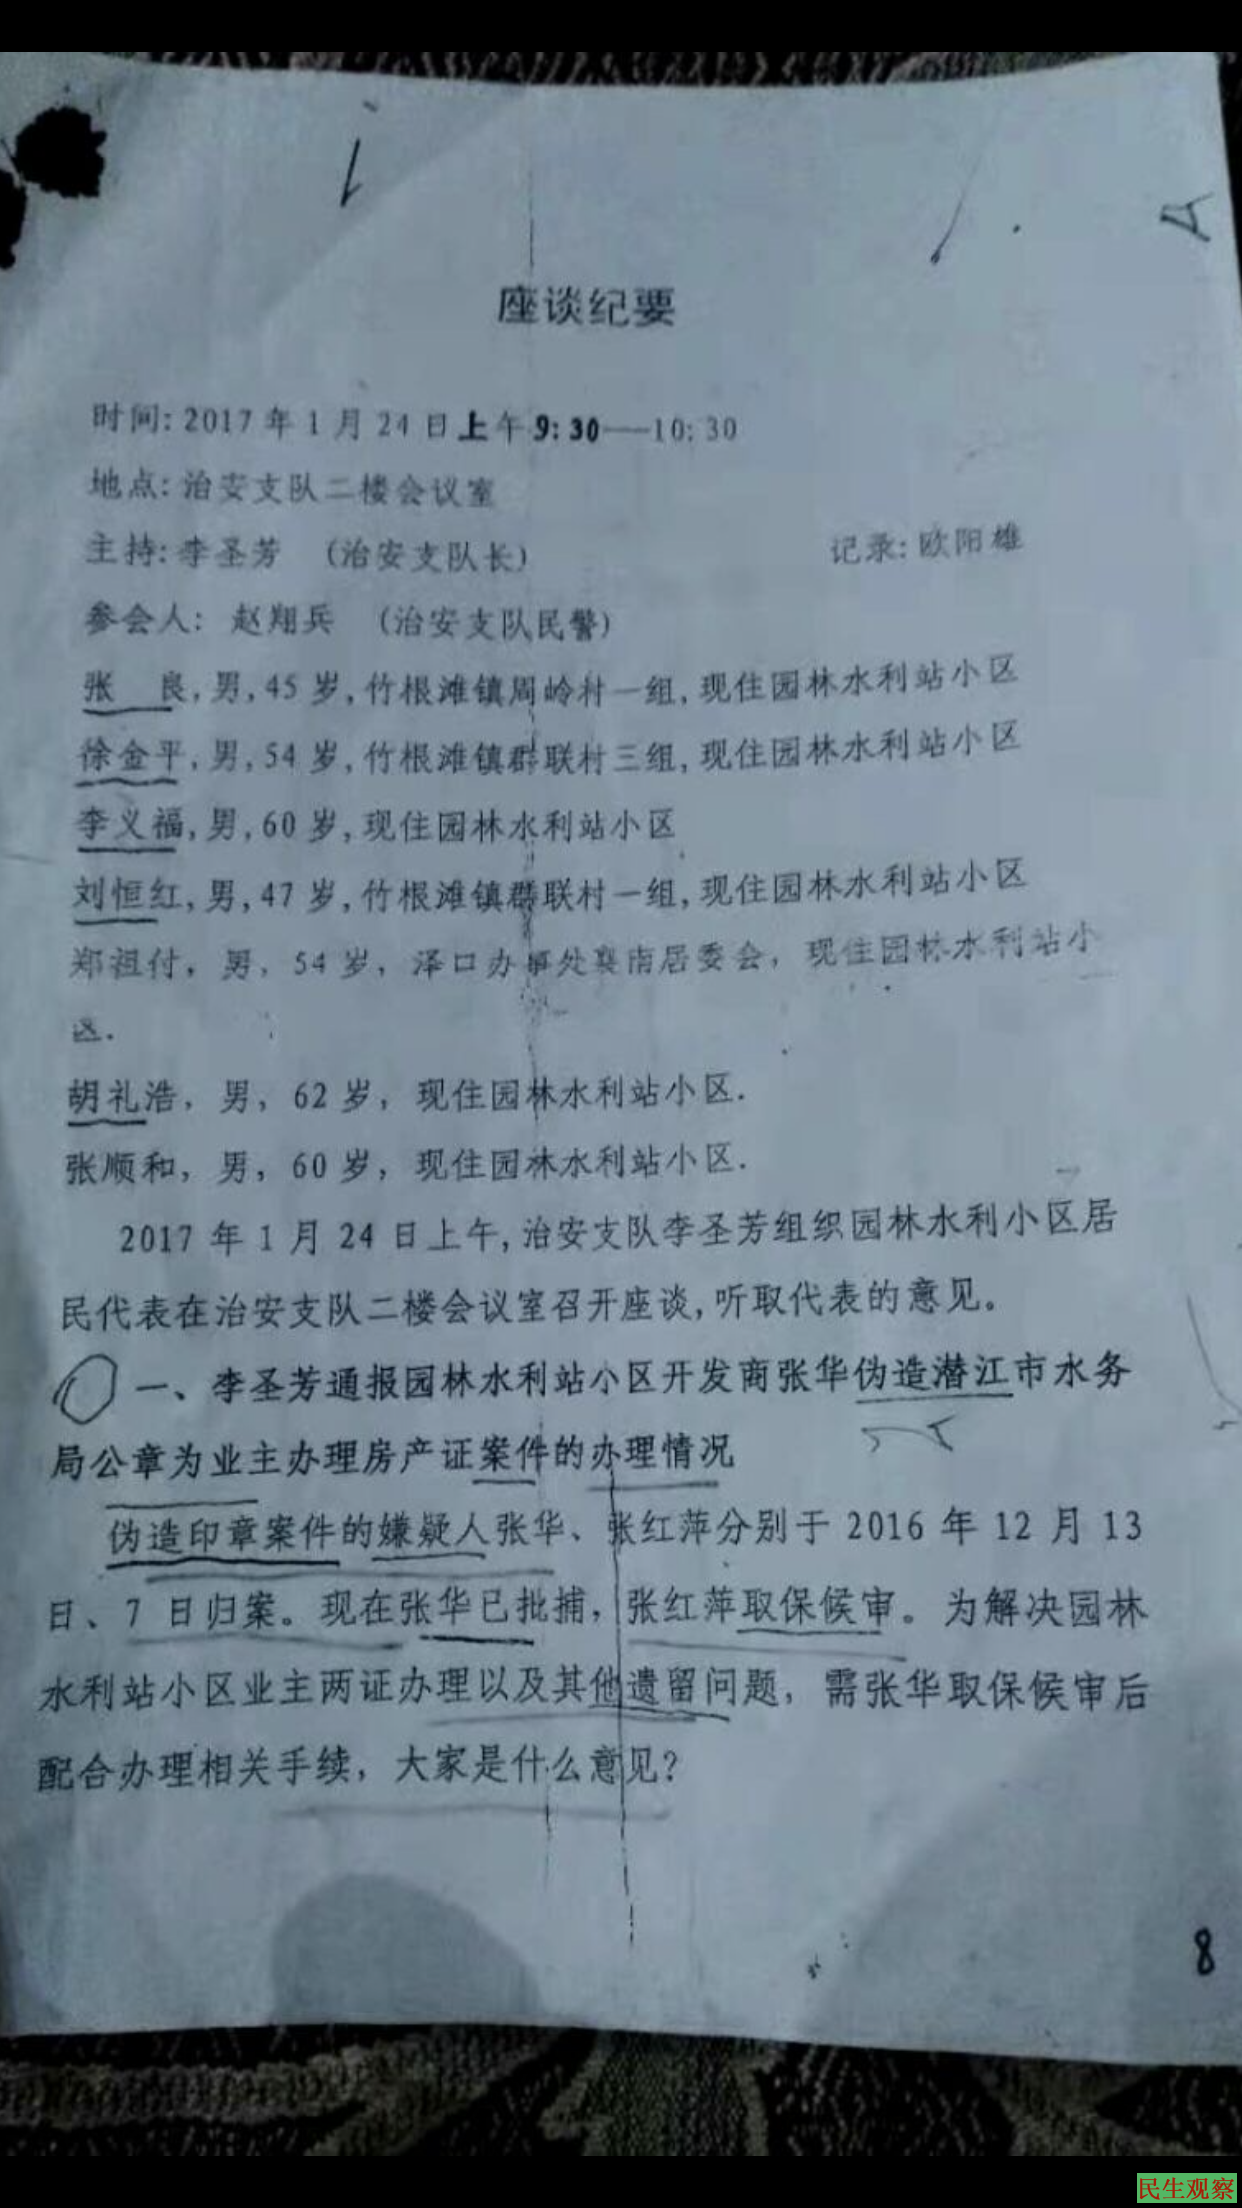 座谈纪要
时间: 2017 年 1 月 24 日上午 9: 30——10: 30
地点: 治安支队二楼会议室
主持: 李圣芳 (治安支队长) 记录: 欧阳雄
参会人: 赵翔兵 (治安支队民警)
张 良, 男, 45 岁, 竹根滩镇周岭村一组, 现住园林水利站小区
徐金平, 男, 54 岁, 竹根滩镇群联村三组, 现住园林水利站小区
李义福, 男, 60 岁, 现住园林水利站小区
刘恒红, 男, 47 岁, 竹根滩镇群联村一组, 现住园林水利站小区
郑祖付, 男, 54 岁, 泽口办事处襄南居委会, 现住园林水利站小
区.
胡礼浩, 男, 62 岁, 现住园林水利站小区.
张顺和, 男, 60 岁, 现住园林水利站小区.
2017 年 1 月 24 日上午, 治安支队李圣芳组织园林水利小区居
民代表在治安支队二楼会议室召开座谈, 听取代表的意见。
一、李圣芳通报园林水利站小区开发商张华伪造潜江市水务
局公章为业主办理房产证案件的办理情况
伪造印章案件的嫌疑人张华、张红萍分别于 2016 年 12 月 13
日、7 日归案。现在张华已批捕, 张红萍取保候审。为解决园林
水利站小区业主两证办理以及其他遗留问题, 需张华取保候审后
配合办理相关手续, 大家是什么意见?
8
民生观察